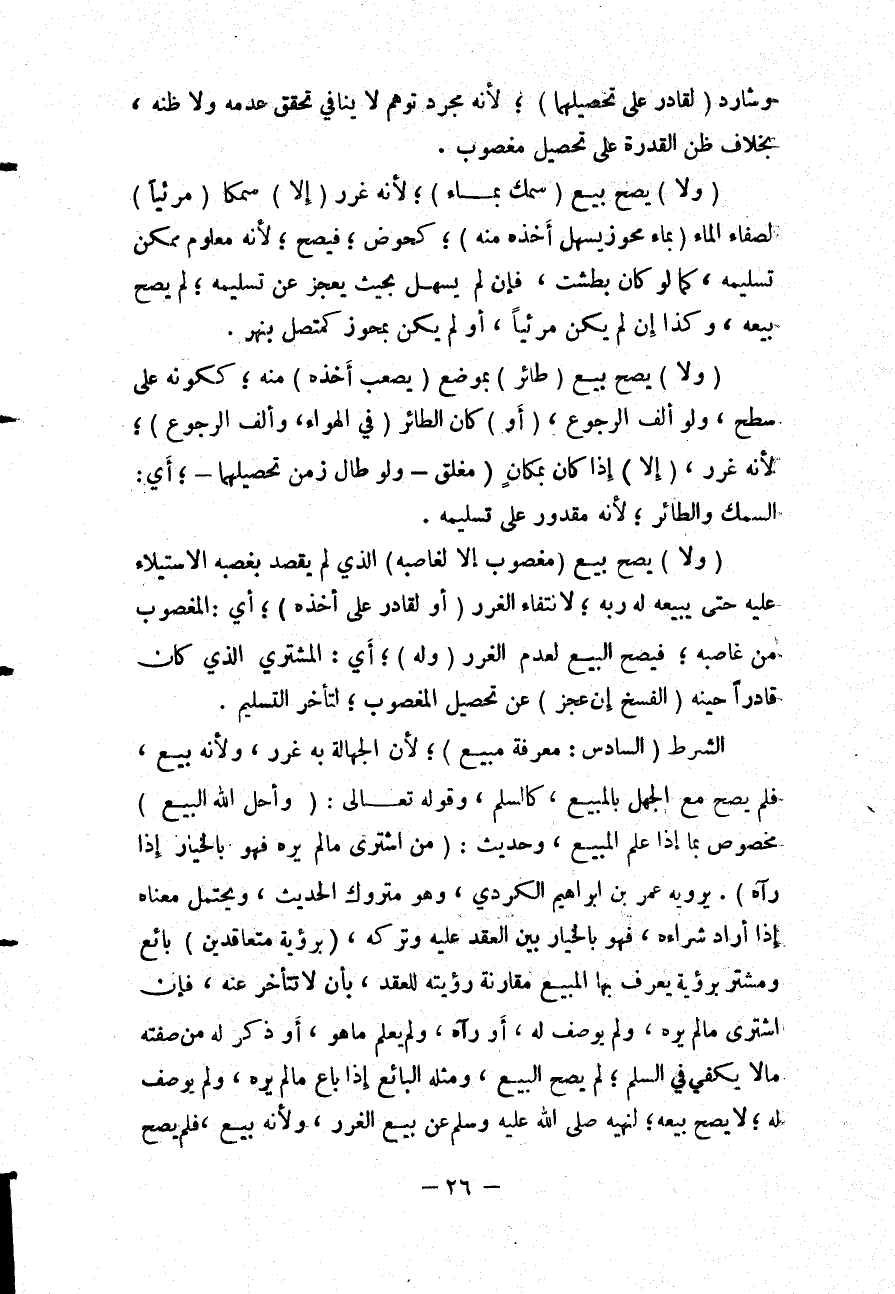 وشارد ( لقادر على تحصيلها ) ؛ لأنه مجرد توهم لا ينافي تحقق عدمه ولا ظنه ،
بخلاف ظن القدرة على تحصيل مغصوب .
( ولا ) يصح بيع ( سمك بمـــاء ) ؛ لأنه غرر ( إلا ) سمكا ( مرئياً )
لصفاء الماء ( بماء محوز يسهل أخذه منه ) ؛ كحوض ؛ فيصح ؛ لأنه معلوم ممكن
تسليمه ، كما لو كان بطشت ، فإن لم يسهـل بحيث يعجز عن تسليمه ؛ لم يصح
بيعه ، وكذا إن لم يكن مرئياً ، أو لم يكن بمحوز كمتصل بنهر .
( ولا ) يصح بيع ( طائر ) بموضع ( يصعب أخذه ) منه ؛ ككونه على
سطح ، ولو ألف الرجوع ، ( أو ) كان الطائر ( في الهواء، وألف الرجوع ) ؛
لأنه غرر ، ( إلا ) إذا كان بمكانٍ ( مغلق – ولو طال زمن تحصيلها – ؛ أي:
السمك والطائر ؛ لأنه مقدور على تسليمه .
( ولا ) يصح بيع ( مغصوب إلا لغاصبه ) الذي لم يقصد بغصبه الاستيلاء
عليه حتى يبيعه له ربه ؛ لانتفاء الغرر ( أو لقادر على أخذه ) ؛ أي :المغصوب
من غاصبه ؛ فيصح البيع لعدم الغرر ( وله ) ؛ أي : المشتري الذي كان
قادراً حينه ( الفسخ إن عجز ) عن تحصيل المغصوب ؛ لتأخر التسليم .
الشرط ( السادس : معرفة مبيع ) ؛ لأن الجهالة به غرر ، ولأنه بيع ،
فلم يصح مع الجهل بالمبيع ، كالسلم ، وقوله تعـــالى : ( وأحل الله البيع )
مخصوص بما إذا علم المبيع ، وحديث : ( من اشترى مالم يره فهو بالخيار إذا
رآه ) . يرويه عمر بن ابراهيم الكردي ، وهو متروك الحديث ، ويحتمل معناه
إذا أراد شراءه ، فهو بالخيار بين العقد عليه وتركه ، ( برؤية متعاقدين ) بائع
ومشتر برؤية يعرف بها المبيع مقارنة رؤيته للعقد ، بأن لا تتأخر عنه ، فإن
اشترى مالم يره ، ولم يوصف له ، أو رآه ، ولم يعلم ماهو ، أو ذكر له من صفته
مالا يكفي في السلم ؛ لم يصح البيع ، ومثله البائع إذا باع مالم يره ، ولم يوصف
له ؛ لا يصح بيعه ؛ لنهيه صلى الله عليه وسلم عن بيع الغرر ، ولأنه بيع ،فلم يصح
– ٢٦ –